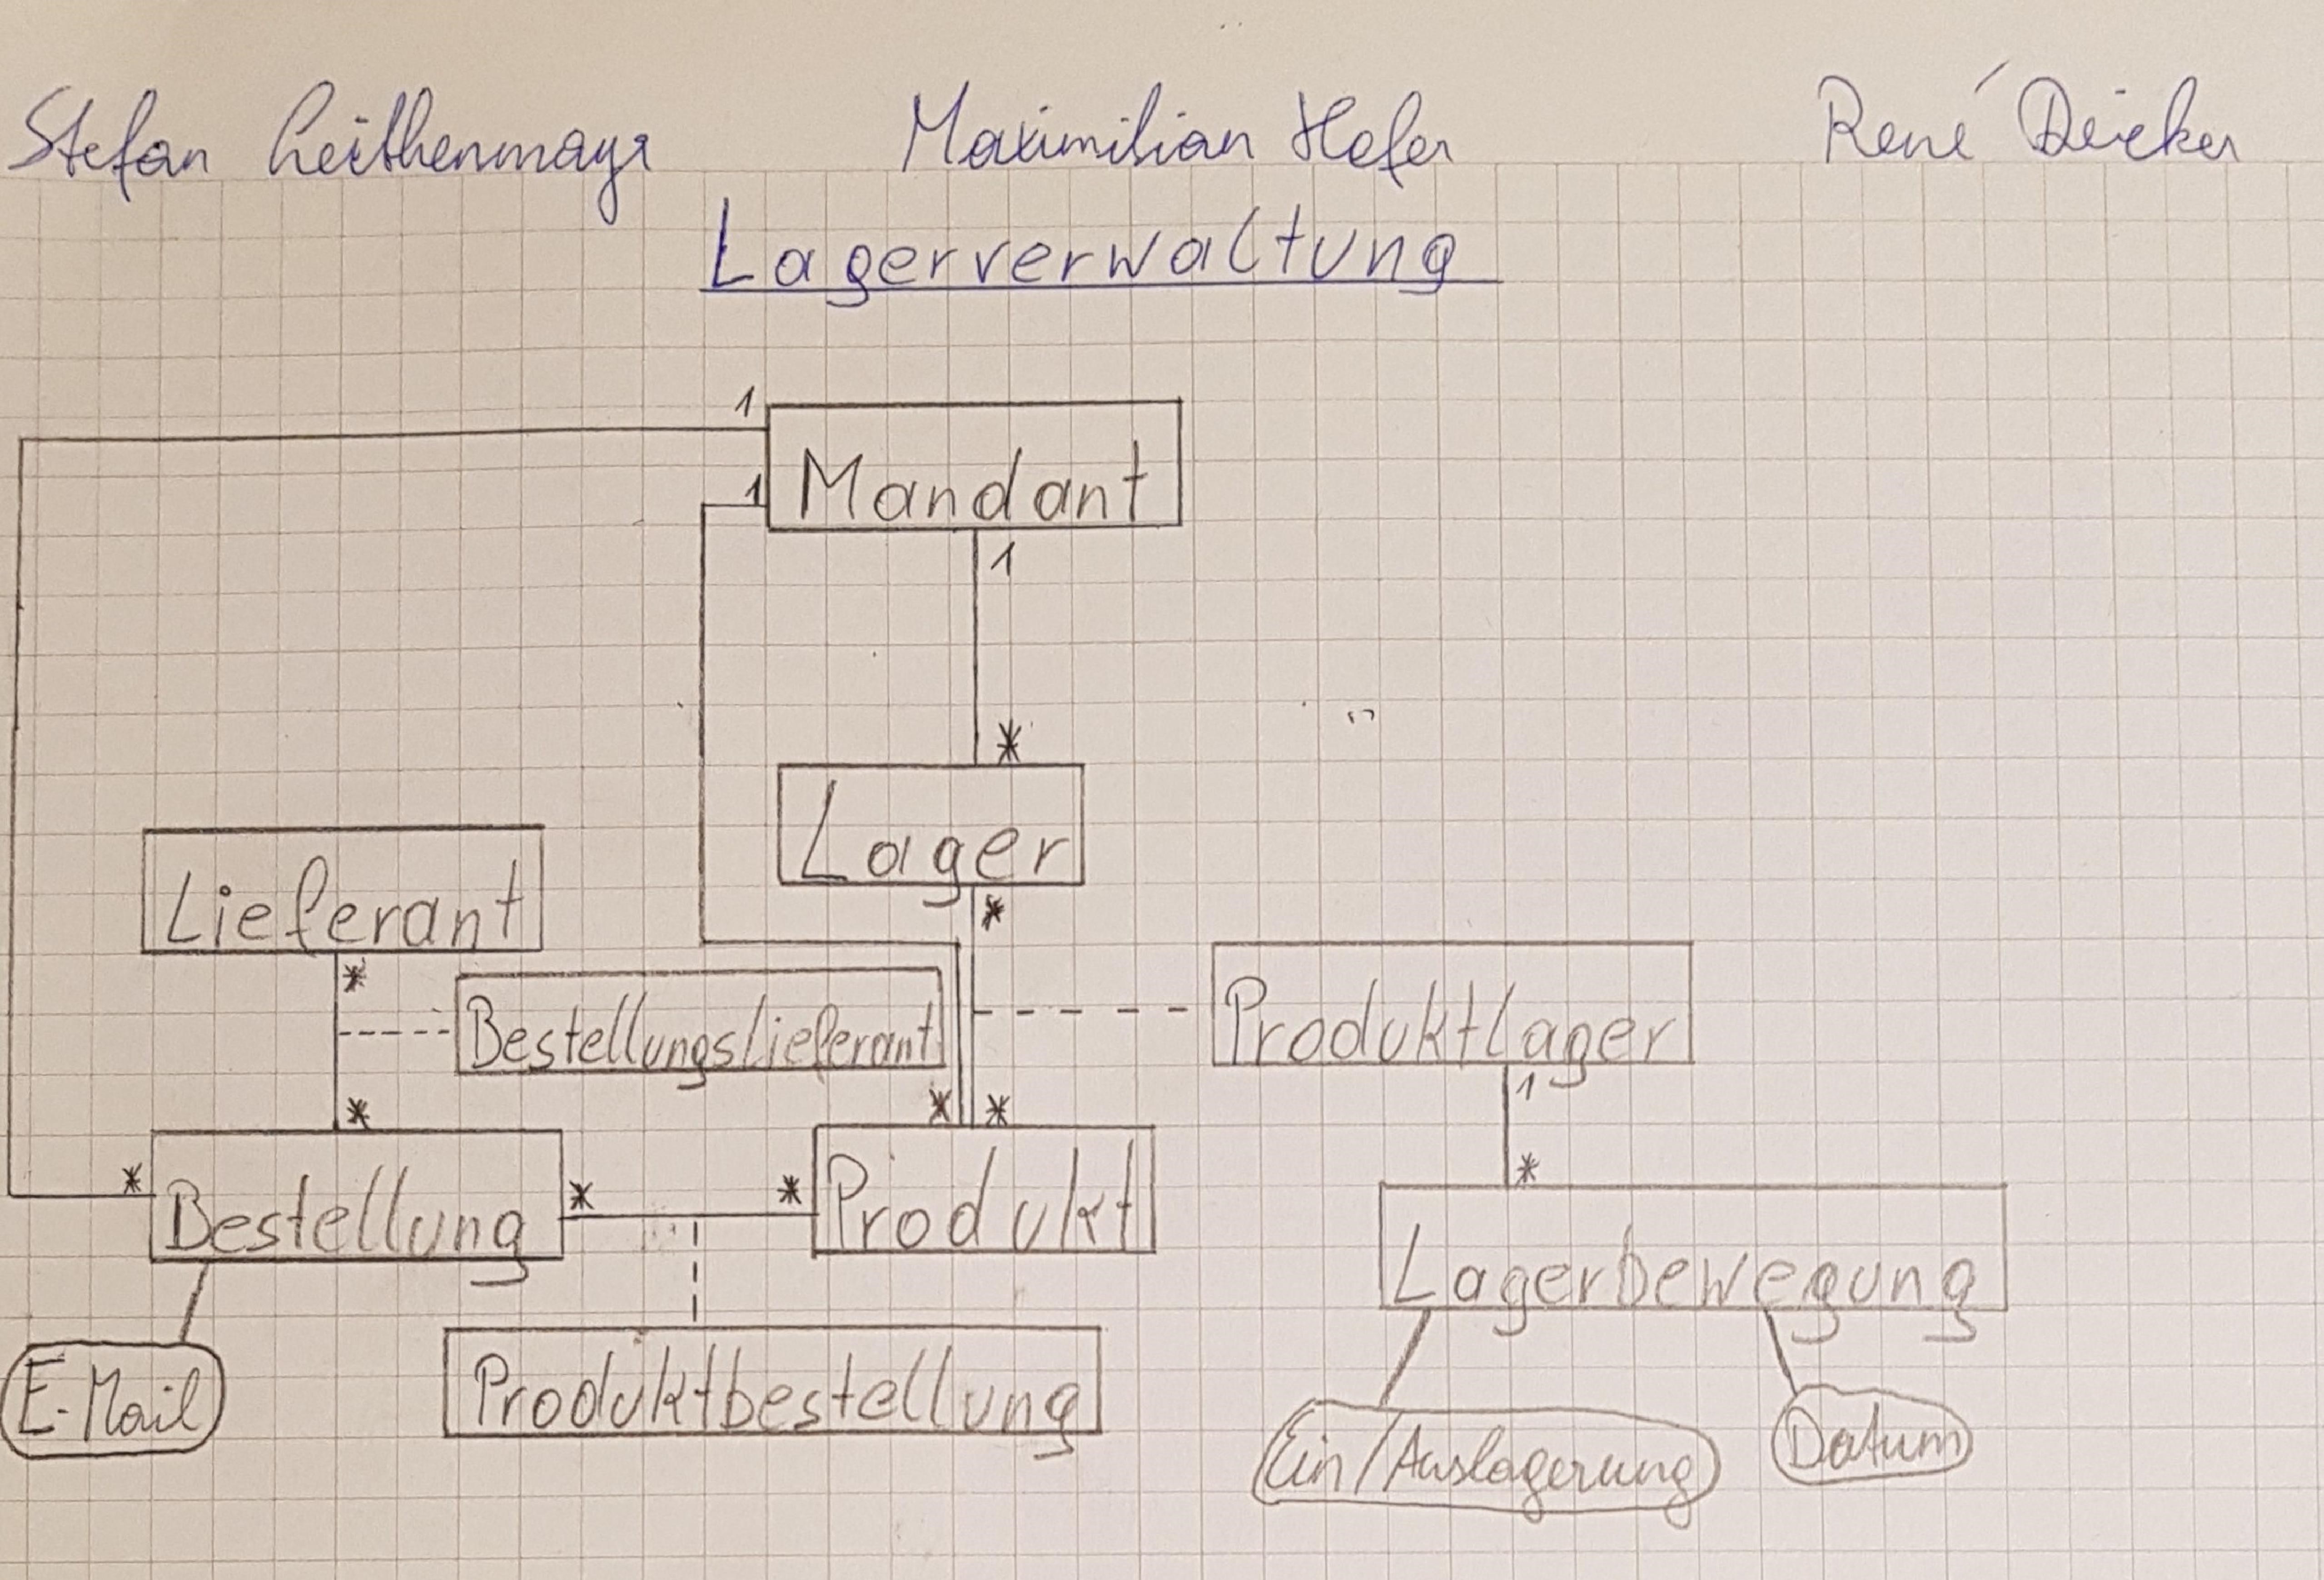 Stefan Leithenmayr Maximilian Hofer René Deicker
Lagerverwaltung
1
Mandant
1
1
*
Lager
*
Lieferant
*
Bestellungslieferant
Produktlager
1
*
* *
*
Bestellung
* *
Produkt
*
Lagerbewegung
E-Mail
Produktbestellung
Ein/Auslagerung
Datum